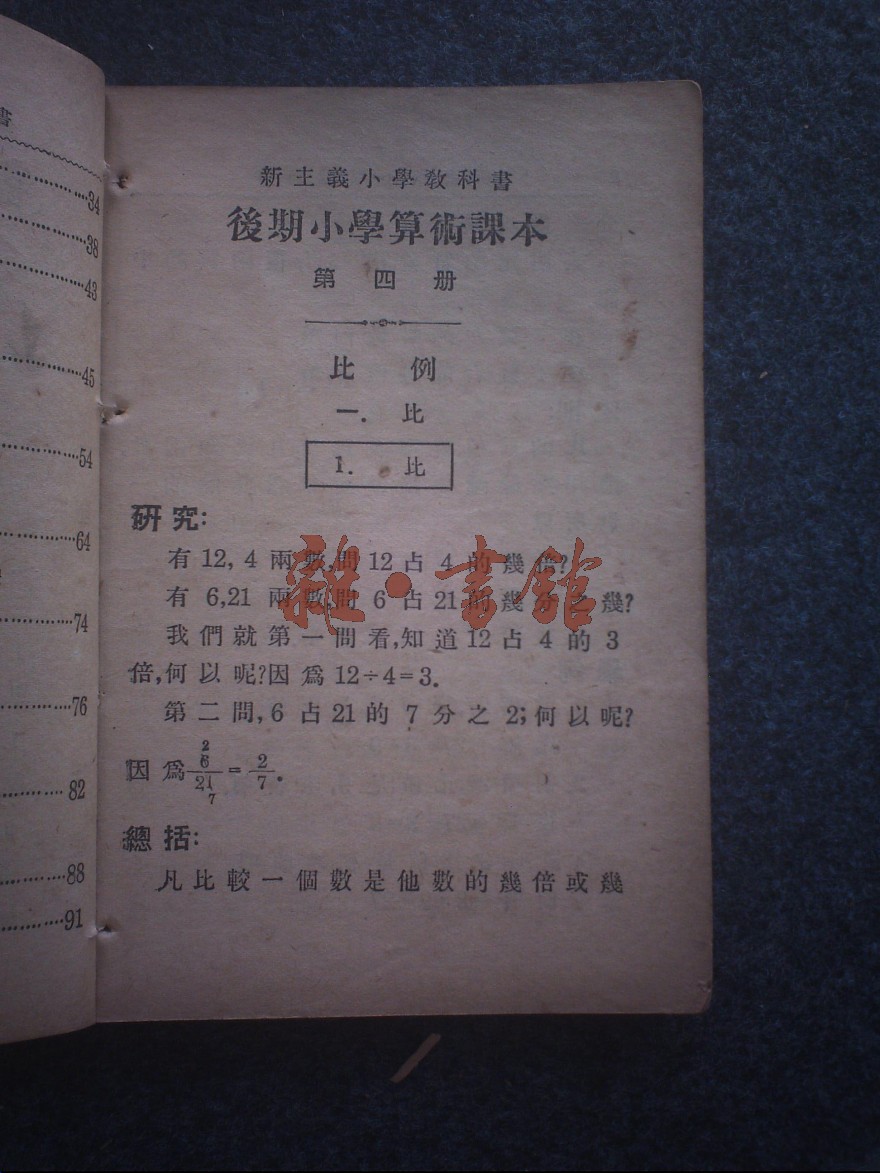 書
34
38
43
45
54
64
74
76
82
88
91
新主義小學教科書
後期小學算術課本
第四册
比例
一.比
1.比
研究:
有12,4兩數,問12占4的幾倍?
有6,21兩數,問6占21的幾分之幾?
我們就第一問看,知道12占4的3
倍,何以呢?因爲12÷4=3.
第二問,6占21的7分之2;何以呢?
因爲 2 6/21 7 = 2/7.
總括:
凡比較一個數是他數的幾倍或幾
雜·書館